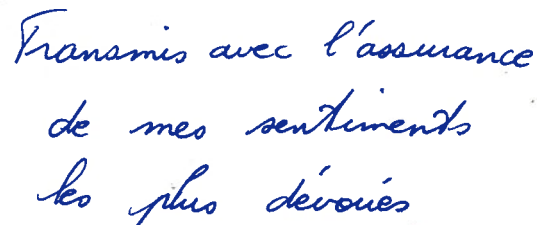 Transmis avec l'assurance
de mes sentiments
les plus dévoués